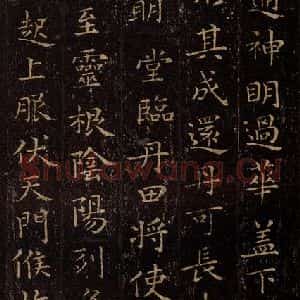 神明過華蓋下
其成還丹可長
明堂臨丹田將使
至靈根陰陽列
起上服伏天門候
Shufawang.CN